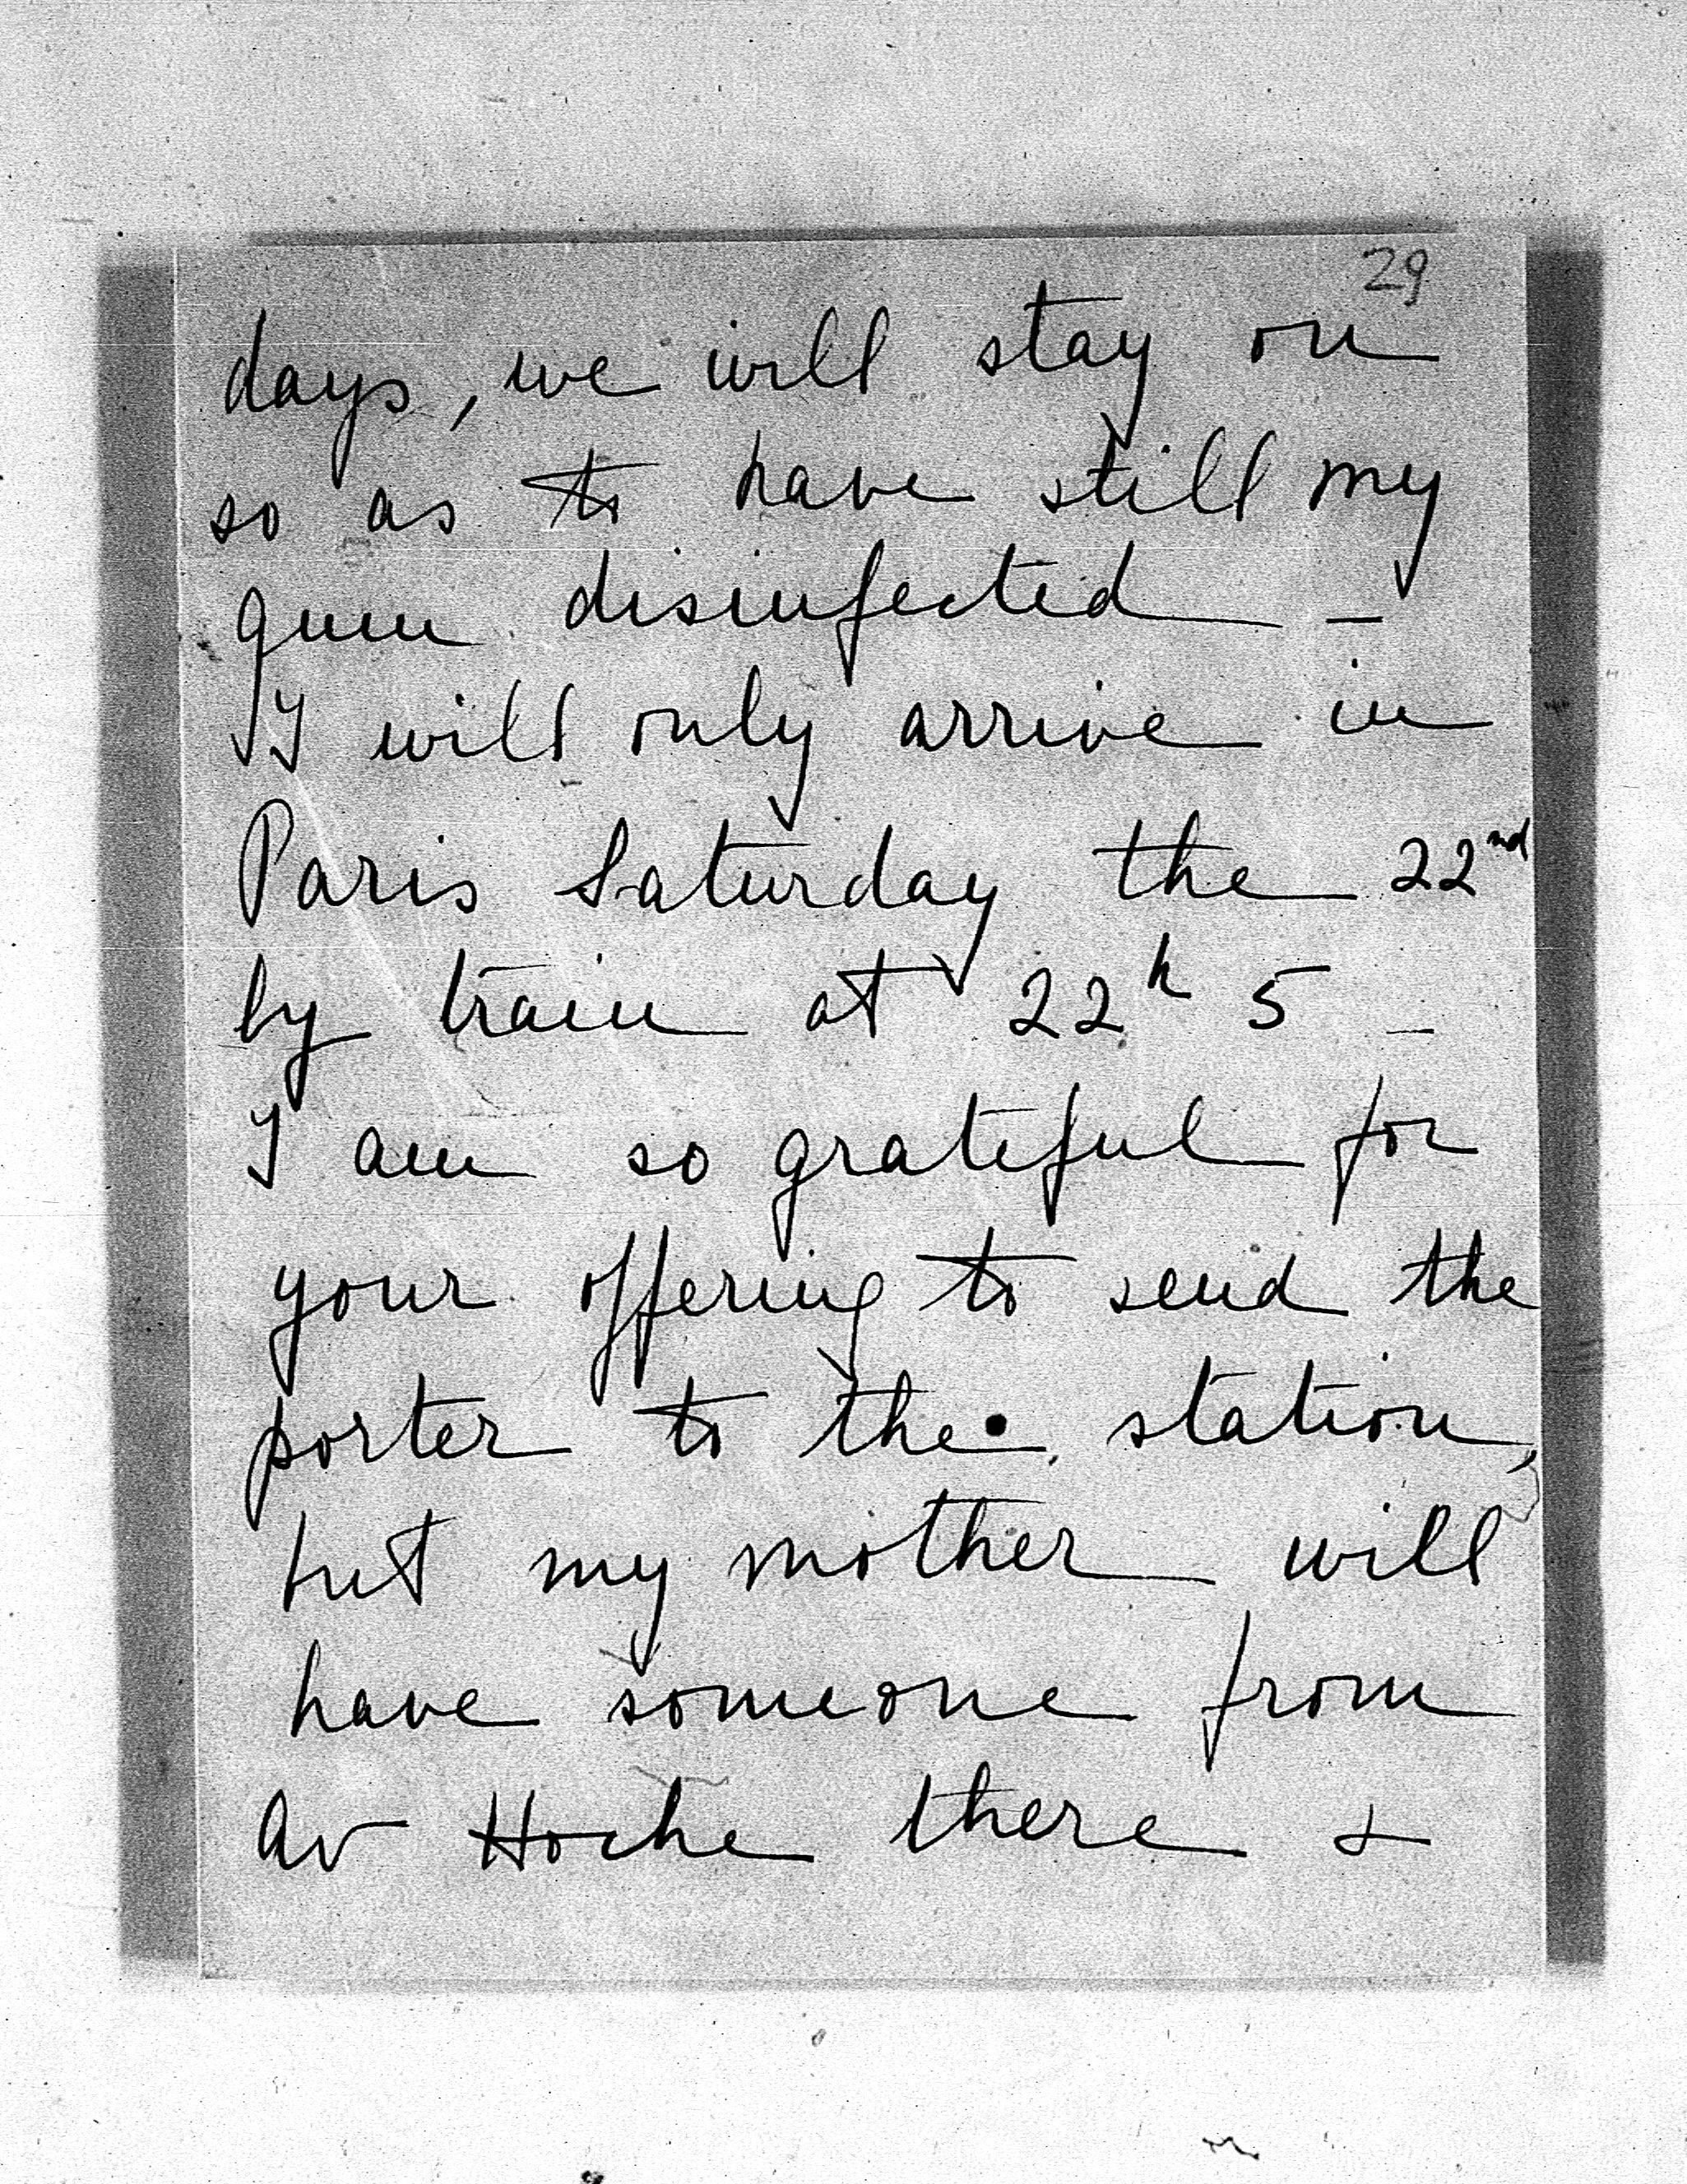 29
days, we will stay on
so as to have still my
gum disinfected –
I will only arrive in
Paris Saturday the 22nd
by train at 22h 5 –
I am so grateful for
your offering to send the
porter to the station,
but my mother will
have someone from
Av Hoche there &